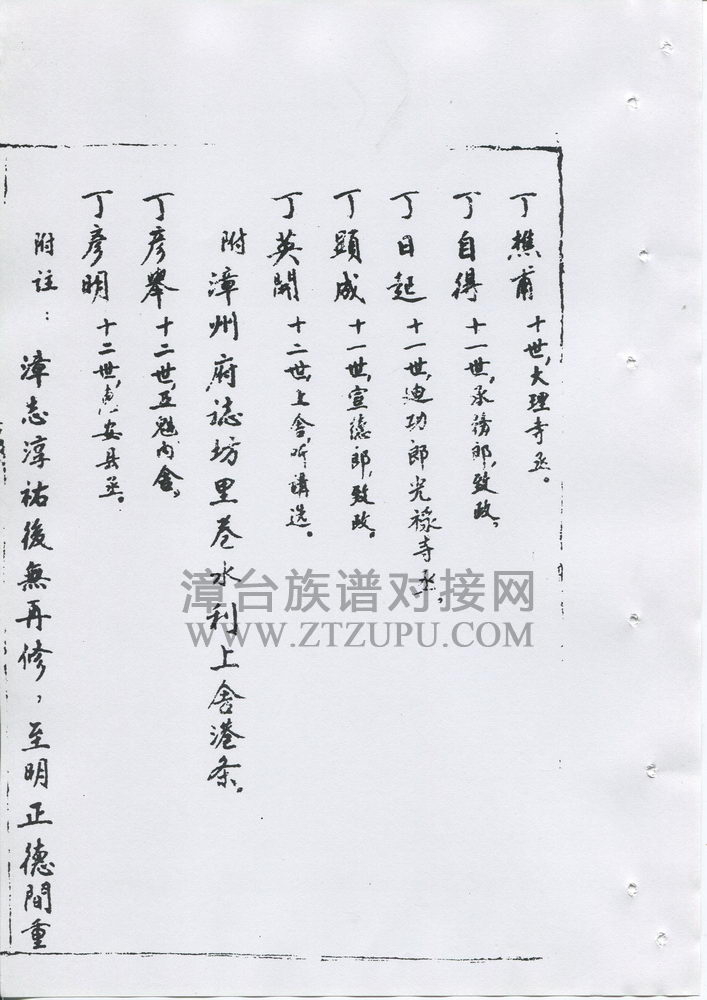 丁樵甫 十世，大理寺丞。
丁自得 十一世，承務郎，致政。
丁日起 十一世，迪功郎光祿寺丞。
丁顕成 十一世，宣德郎，致政。
丁英開 十二世，上舍，听講选。
附漳州府誌坊里卷水利上舍港条。
丁彥舉 十二世，五魁内舍。
丁彥明 十二世，惠安县丞。
附註：漳志淳祐後無再修，至明正德間重
漳台族谱对接网
WWW.ZTZUPU.COM